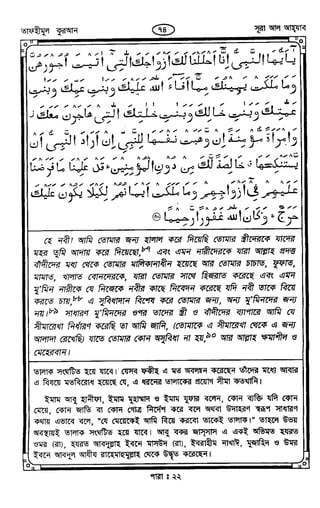 তাফহীমুল কুরআন
৭৪
সূরা আল আহযাব
يٰٓاَيُّهَا النَّبِيُّ اِنَّآ اَحْلَلْنَا لَكَ اَزْوَاجَكَ الّٰتِيْٓ اٰتَيْتَ اُجُوْرَهُنَّ
وَمَا مَلَكَتْ يَمِيْنُكَ مِمَّآ اَفَآءَ اللّٰهُ عَلَيْكَ وَبَنٰتِ عَمِّكَ وَبَنٰتِ
عَمّٰتِكَ وَبَنٰتِ خَالِكَ وَبَنٰتِ خٰلٰتِكَ الّٰتِيْ هَاجَرْنَ مَعَكَ
وَامْرَاَةً مُّؤْمِنَةً اِنْ وَّهَبَتْ نَفْسَهَا لِلنَّبِيِّ اِنْ اَرَادَ النَّبِيُّ اَنْ
يَّسْتَنْكِحَهَا خَالِصَةً لَّكَ مِنْ دُوْنِ الْمُؤْمِنِيْنَ قَدْ عَلِمْنَا مَا فَرَضْنَا
عَلَيْهِمْ فِيْٓ اَزْوَاجِهِمْ وَمَا مَلَكَتْ اَيْمَانُهُمْ لِكَيْلَا يَكُوْنَ عَلَيْكَ
حَرَجٌ وَكَانَ اللّٰهُ غَفُوْرًا رَّحِيْمًا
হে নবী! আমি তোমার জন্য হালাল করে দিয়েছি তোমার স্ত্রীদেরকে যাদের
মহর তুমি আদায় করে দিয়েছো,৮৭ এবং এমন নারীদেরকে যারা আল্লাহ প্রদত্ত
বাঁদীদের মধ্য থেকে তোমার মালিকানাধীন হয়েছে আর তোমার চাচাত, ফুফাত,
মামাত, খালাত বোনদেরকে, যারা তোমার সাথে হিজরাত করেছে এবং এমন
মু'মিন নারীকে যে নিজেকে নবীর কাছে নিবেদন করেছে যদি নবী তাকে বিয়ে
করতে চায়,৮৮ এ সুবিধাদান বিশেষ করে তোমার জন্য, অন্য মু'মিনদের জন্য
নয়।৮৯ সাধারণ মু'মিনদের ওপর তাদের স্ত্রী ও বাঁদীদের ব্যাপারে আমি যে
সীমারেখা নির্ধারণ করেছি তা আমি জানি, (তোমাকে এ সীমারেখা থেকে এ জন্য
আলাদা রেখেছি) যাতে তোমার কোন অসুবিধা না হয়,৯০ আর আল্লাহ ক্ষমাশীল ও
মেহেরবান।
তালাক সংঘটিত হয়ে যাবে। যেসব ফকীহ এ মত অবলম্বন করেছেন তাঁদের মধ্যে আবার
এ বিষয়ে মতবিরোধ হয়েছে যে, এ ধরনের তালাকের প্রয়োগ সীমা কতখানি।
ইমাম আবু হানীফা, ইমাম মুহাম্মাদ ও ইমাম যুফার বলেন, কোন ব্যক্তি যদি কোন
মেয়ে, কোন জাতি বা কোন গোত্র নির্দেশ করে বলে অথবা উদাহরণ স্বরূপ সাধারণ
কথায় এভাবে বলে, "যে মেয়েকেই আমি বিয়ে করবো তাকেই তালাক।" তাহলে উভয়
অবস্থায়ই তালাক সংঘটিত হয়ে যাবে। আবু বকর জাস্সাস এ একই অভিমত হযরত
ওমর (রা), হযরত আবদুল্লাহ ইবনে মাসউদ (রা), ইবরাহীম নাখঈ, মুজাহিদ ও উমর
ইবনে আবদুল আযীয রাহেমাহুমুল্লাহ থেকে উদ্ধৃত করেছেন।
পারা : ২২